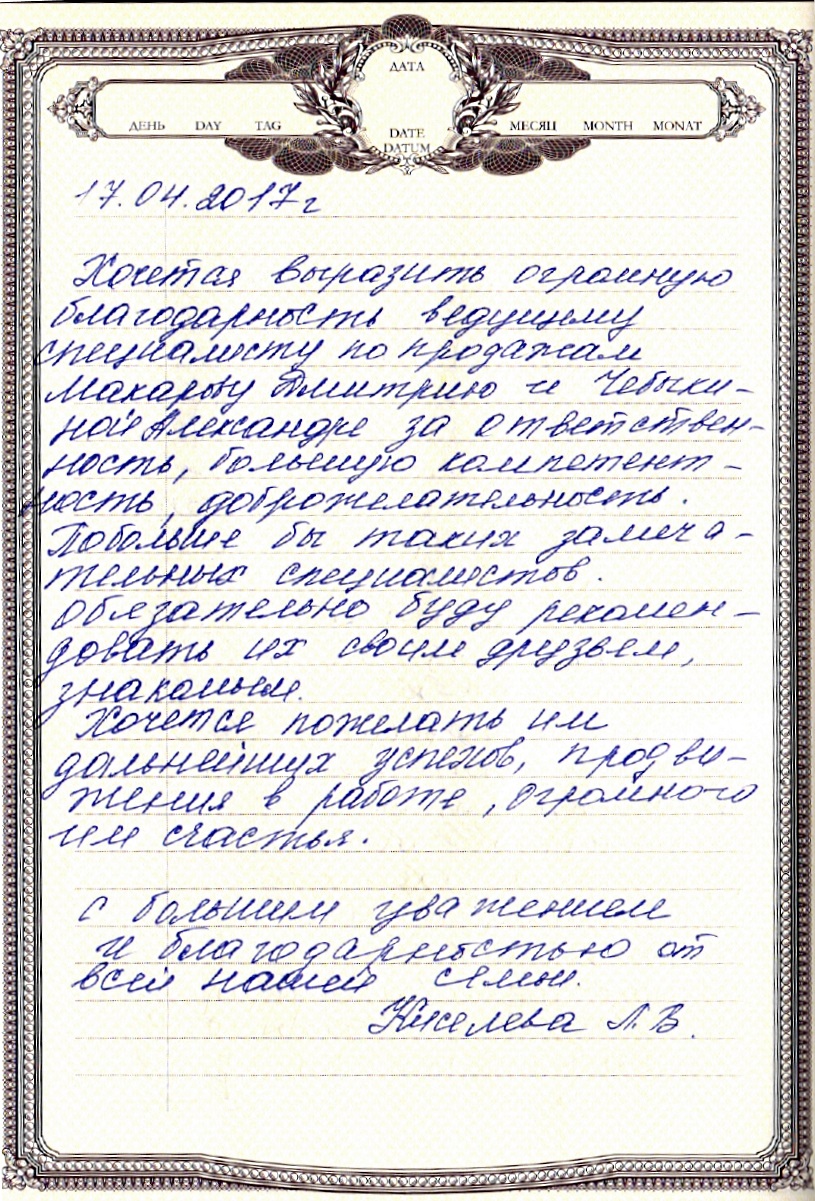 ДАТА
ДЕНЬ DAY TAG
DATE
DATUM
МЕСЯЦ MONTH MONAT
17.04.2017г
Хочется выразить огромную
благодарность ведущему
специалисту по продажам
Макарову Дмитрию и Чебыки-
ной Александре за ответствен-
ность, большую компетент-
ность, доброжелательность.
Побольше бы таких замеча-
тельных специалистов.
Обязательно буду рекомен-
довать их своим друзьям,
знакомым.
Хочется пожелать им
дальнейших успехов, продви-
жения в работе, огромного
им счастья.
с большим уважением
и благодарностью от
всей нашей семьи.
Киселева Л.В.